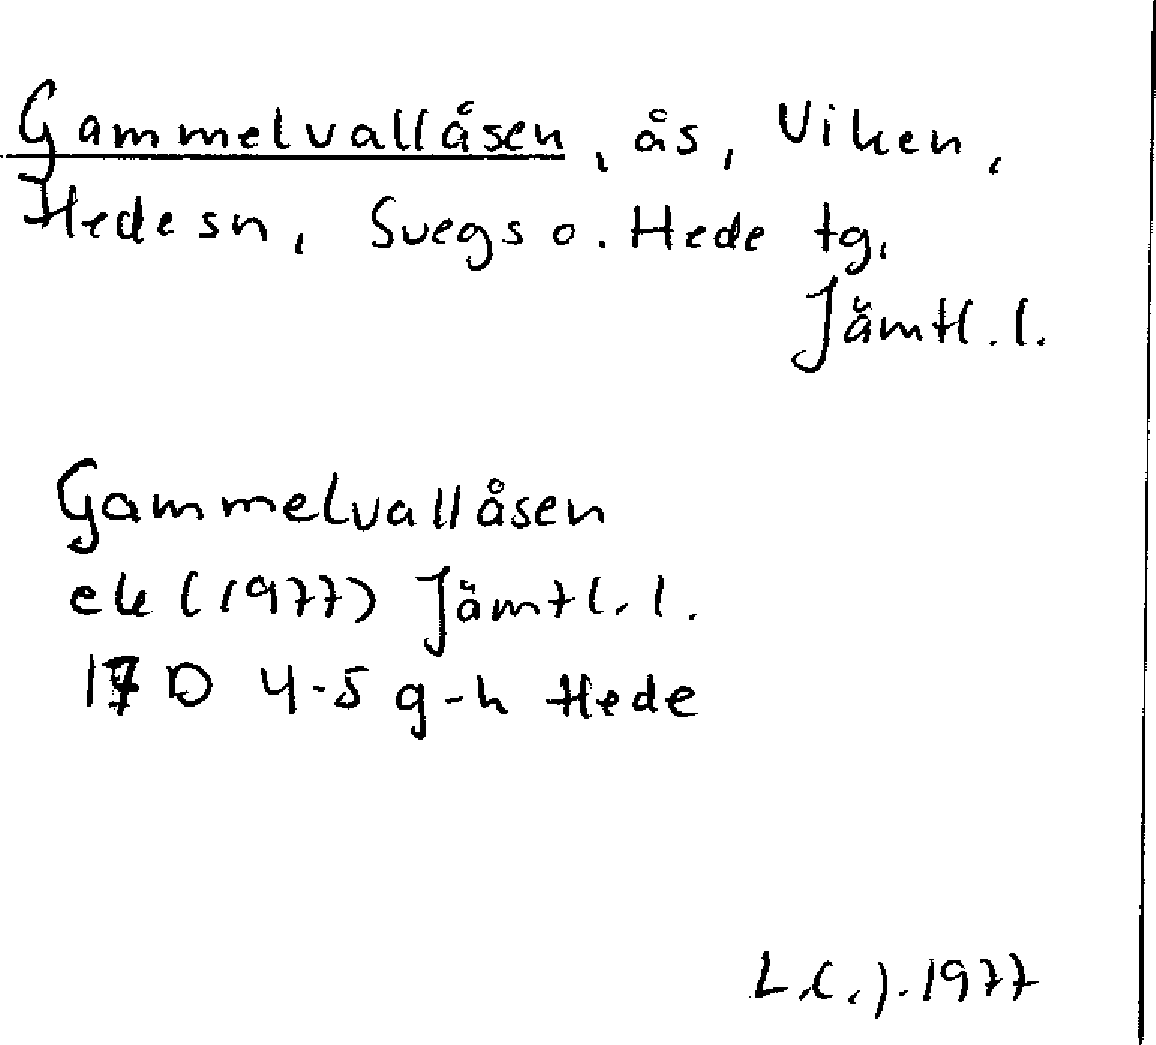 Gammelvallåsen, ås, Viken,
Hede sn, Svegs o. Hede tg,
Jämtl. l.
Gammelvallåsen
ek (1977) Jämtl. l.
17 D 4-5 g-h Hede
1977